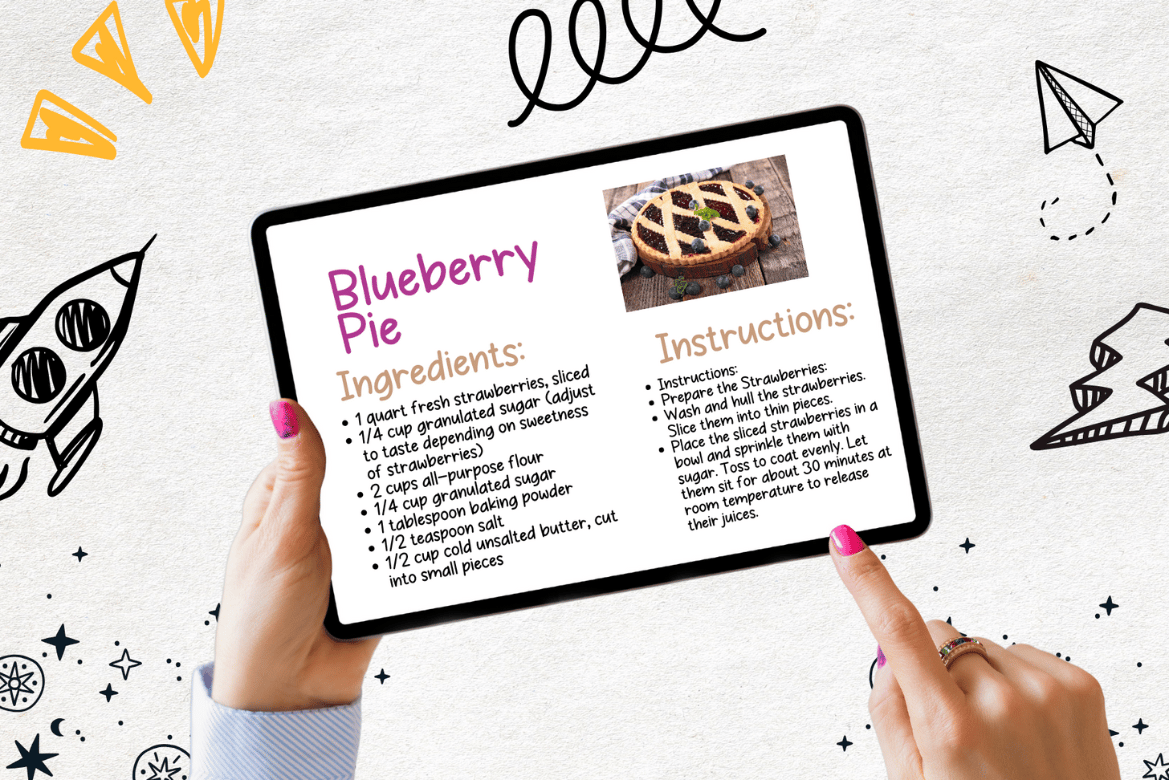 Blueberry
Pie
Ingredients:
• 1 quart fresh strawberries, sliced
• 1/4 cup granulated sugar (adjust
to taste depending on sweetness
of strawberries)
• 2 cups all-purpose flour
• 1/4 cup granulated sugar
• 1 tablespoon baking powder
• 1/2 teaspoon salt
• 1/2 cup cold unsalted butter, cut
into small pieces
Instructions:
• Instructions:
• Prepare the Strawberries:
• Wash and hull the strawberries.
Slice them into thin pieces.
• Place the sliced strawberries in a
bowl and sprinkle them with
sugar. Toss to coat evenly. Let
them sit for about 30 minutes at
room temperature to release
their juices.